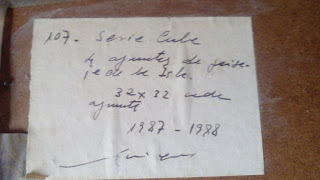 107. Serie Cuba
4 apuntes de paisa-
je de la Isla.
32x32 cada
apunte
1987-1988